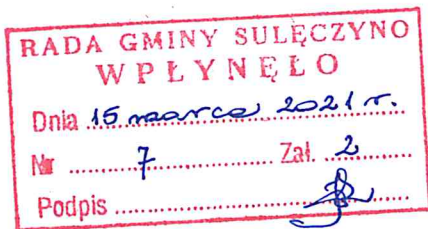 RADA GMINY SULĘCZYNO
WPŁYNĘŁO
Dnia 15 marca 2021 r.
Nr 7 Zał. 2
Podpis